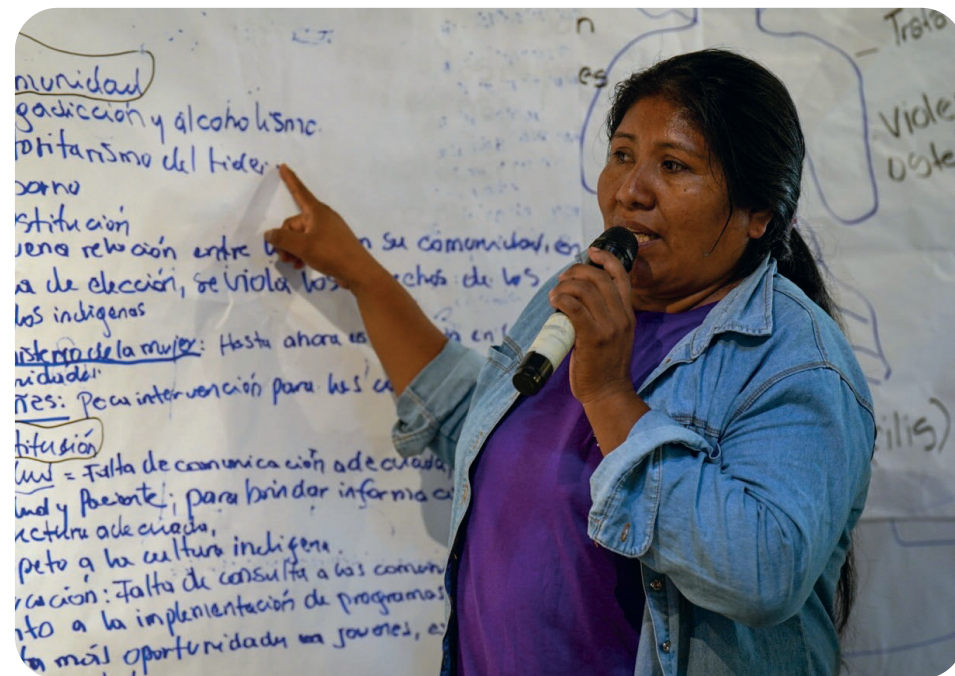 munidad
gadicción y alcoholismo.
del lider
borno
stitución
uena relación entre su comunidad, en
a de elección, se viola los chos de los
los indigenas
isterio de la mujer: Hasta ahora en
nidades
res: Poca intervención para las
titución
lud = Falta de comunicación adecuada,
lud y Paciente; para brindar informaci
uctura adecuada.
peto a la cultura indigena.
cación: Falta de consulta a las comun
nto a la implementación de programas
más oportunidades jovenes,
n
es
Trato
Viole
Uste
ilis)